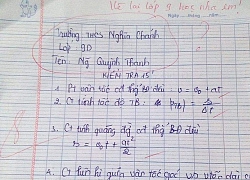 Về lại lớp 9 học nha em!
Ngày... tháng... năm
Trường THCS Nghĩa Chánh
Lớp 9D
Tên: Ng Quỳnh Thanh
KIỂM TRA 15'
1. Pt vận tốc cđ thẳng bđ đều: v = v₀ + at
2. Ct tính tốc độ TB: v(TB) = S/Δt
3. Ct tính quãng đg cđ thẳng bđ đều
s = v₀t + at²/2
4. Ct liên hệ giữa vận tốc góc, và vận tốc dài